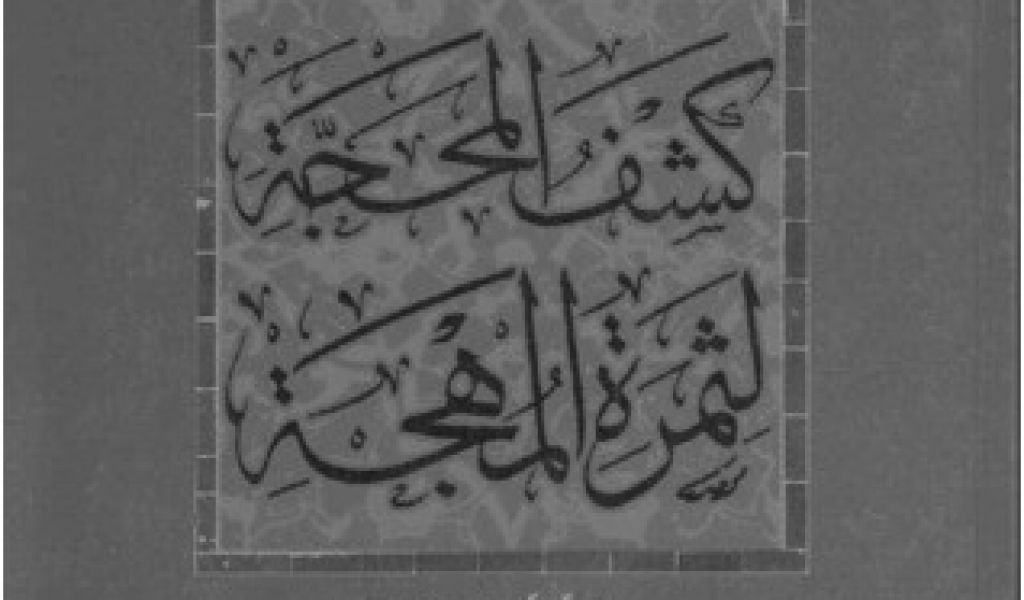 كَشْفُ الْمَحَجَّةِ
لِثَمَرَةِ الْمُهْجَةِ